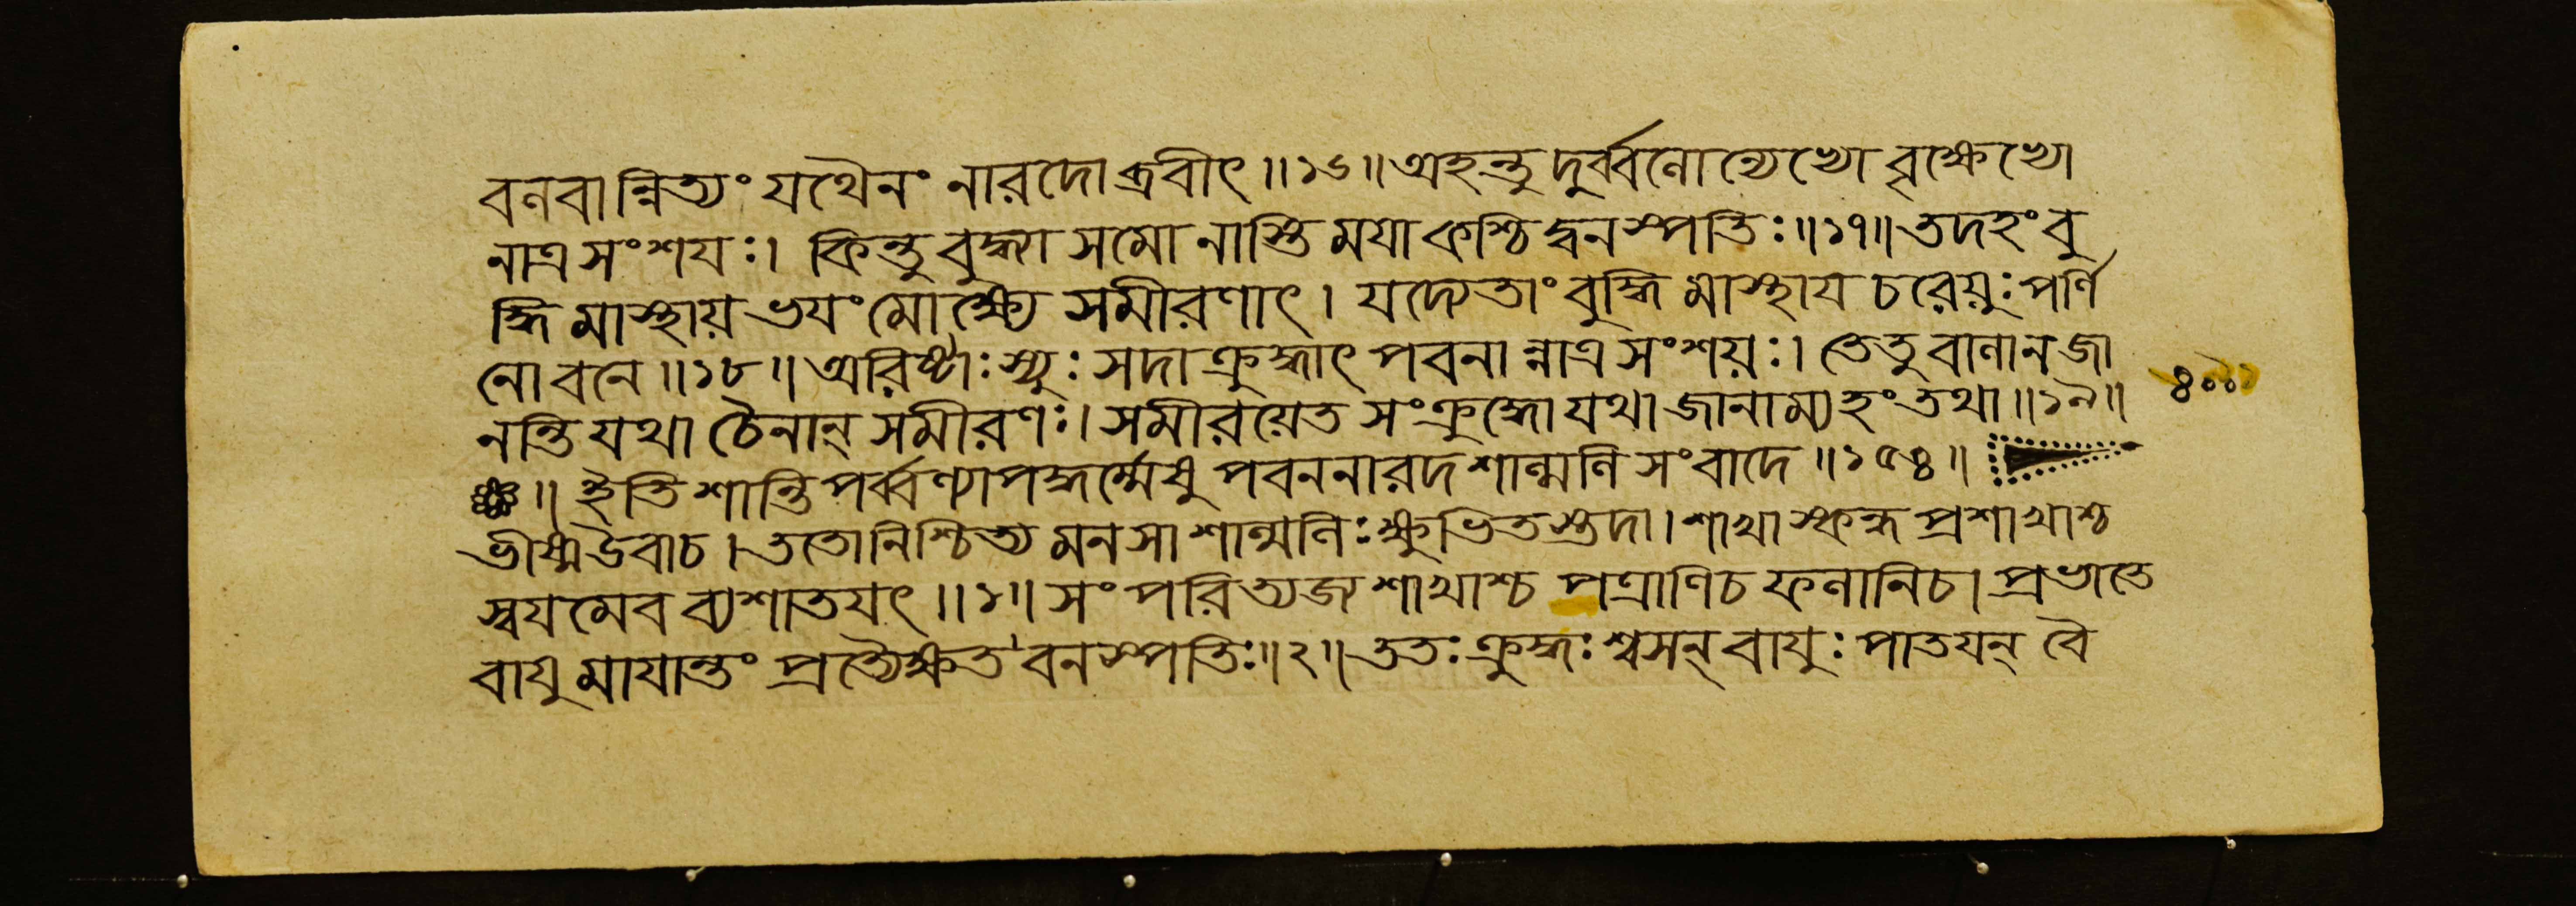 বলবান্নিত্যং যথৈনং নারদোব্রবীৎ॥১৬॥অহন্তু দুর্ব্বলোন্যেভ্যো বৃক্ষেভ্যো
নাত্র সংশয়ঃ। কিন্তু বুদ্ধ্যা সমো নাস্তি ময়া কশ্চিদ্বনস্পতিঃ॥১৭॥তদহং বু
দ্ধিমাস্থায় ভয়ং মোক্ষ্যে সমীরণাৎ। যদ্যেতাং বুদ্ধিমাস্থায় চরেয়ুঃ পর্ণি
নো বনে॥১৮॥অরিষ্টাঃ স্যুঃ সদা ক্রুদ্ধাৎ পবনান্নাত্র সংশয়ঃ। তেতু বালা ন জা
নন্তি যথা চৈনান্ সমীরণঃ। সমীরয়েত সংক্রুদ্ধো যথা জানাম্যহং তথা॥১৯॥
॥ ইতি শান্তিপর্ব্বণ্যাপদ্ধর্ম্মেষু পবননারদশাল্মলি সংবাদে॥১৫৪॥
ভীষ্ম উবাচ। ততো নিশ্চিত্য মনসা শাল্মলিঃ ক্ষুভিতস্তদা। শাখাস্কন্ধ প্রশাখাশ্চ
স্বয়মেব ব্যশাতয়ৎ॥১॥ সংপরিত্যজ্য শাখাশ্চ পত্রাণি চ ফলানি চ। প্রভাতে
বায়ুমায়ান্তং প্রত্যৈক্ষত বনস্পতিঃ॥২॥ততঃ ক্রুদ্ধঃ শ্বসন্ বায়ুঃ পাতয়ন্ বৈ
৪০০